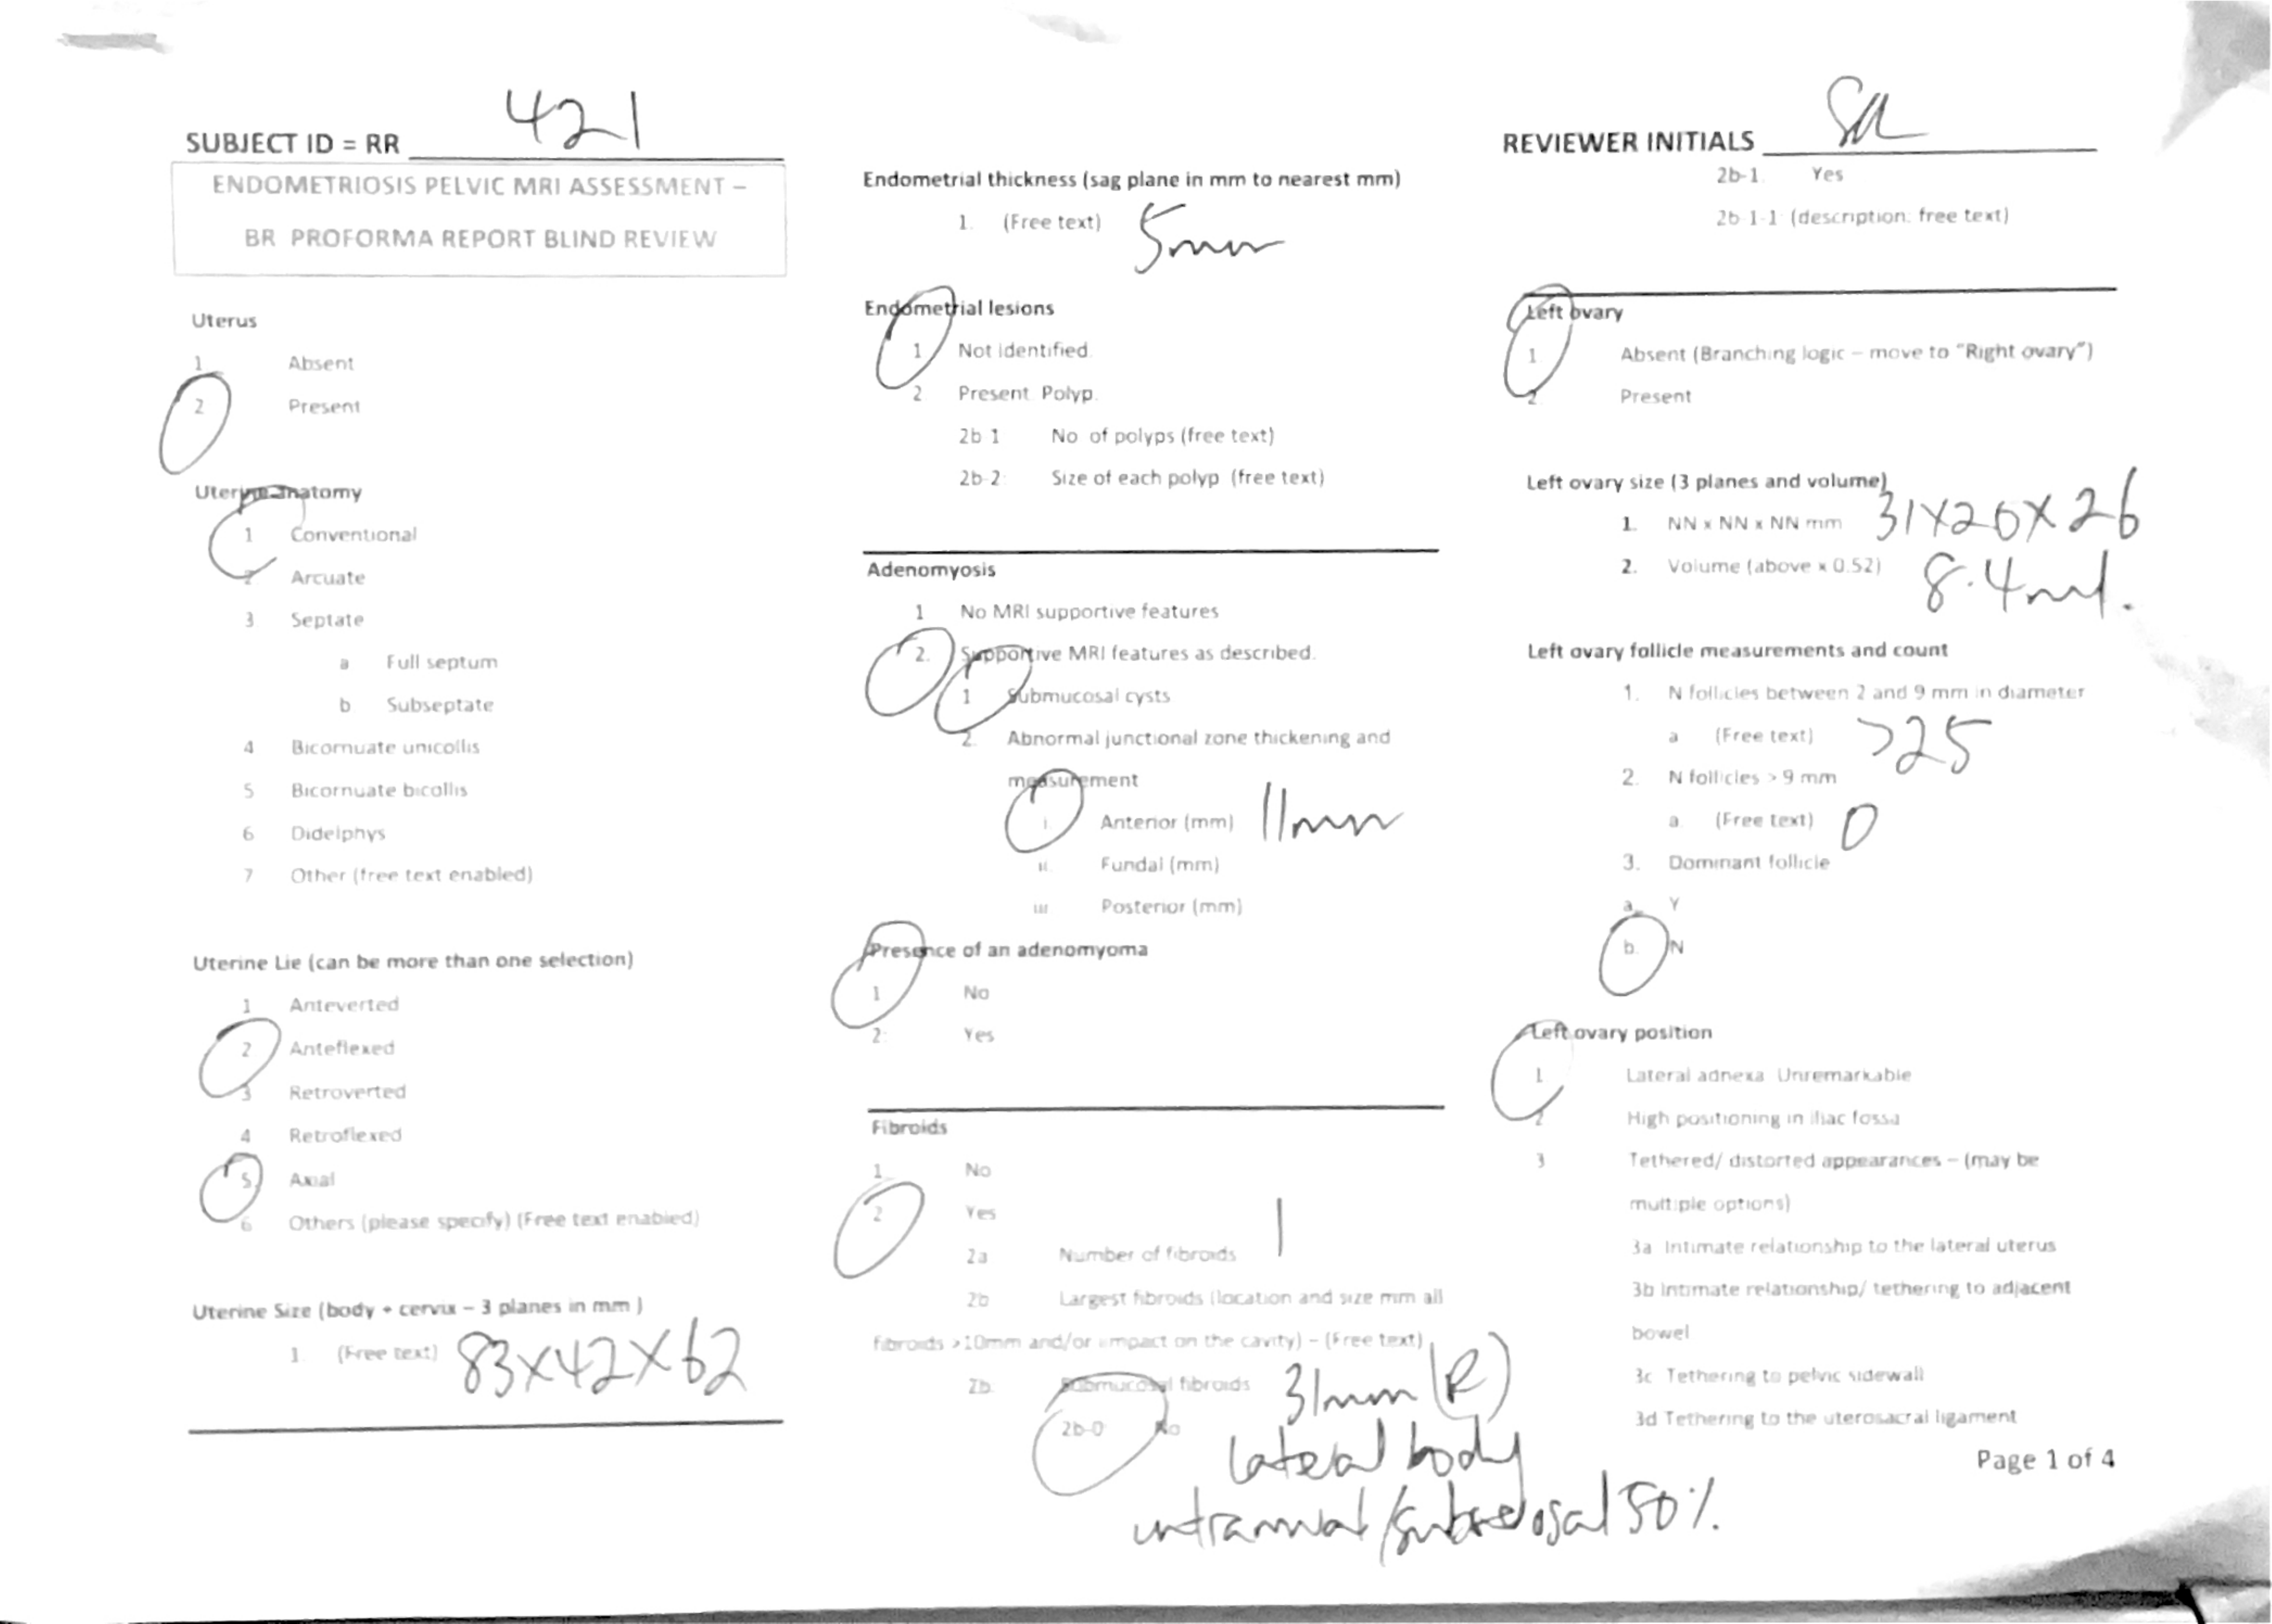 SUBJECT ID = RR 421
ENDOMETRIOSIS PELVIC MRI ASSESSMENT –
BR PROFORMA REPORT BLIND REVIEW
Uterus
1 Absent
2 Present
Uterine anatomy
1 Conventional
2 Arcuate
3 Septate
a Full septum
b Subseptate
4 Bicornuate unicollis
5 Bicornuate bicollis
6 Didelphys
7 Other (free text enabled)
Uterine Lie (can be more than one selection)
1 Anteverted
2 Anteflexed
3 Retroverted
4 Retroflexed
5 Axial
6 Others (please specify) (Free text enabled)
Uterine Size (body + cervix – 3 planes in mm )
1 (Free text) 83X42X62
Endometrial thickness (sag plane in mm to nearest mm)
1. (Free text) 5mm
Endometrial lesions
1 Not identified.
2 Present Polyp.
2b 1 No of polyps (free text)
2b-2: Size of each polyp (free text)
Adenomyosis
1 No MRI supportive features
2. Supportive MRI features as described.
1 Submucosal cysts
2. Abnormal junctional zone thickening and
measurement
i Anterior (mm) 11mm
ii. Fundal (mm)
iii Posterior (mm)
Presence of an adenomyoma
1 No
2: Yes
Fibroids
1. No
2 Yes
2a Number of fibroids 1
2b Largest fibroids (location and size mm all
fibroids >10mm and/or impact on the cavity) – (Free text)
2b. Submucosal fibroids 31mm (R)
2b-0 No lateral body
intramural/subserosal 50%
REVIEWER INITIALS
2b-1. Yes
2b-1-1: (description: free text)
Left ovary
1. Absent (Branching logic – move to "Right ovary")
2. Present
Left ovary size (3 planes and volume)
1. NN x NN x NN mm 31X20X26
2. Volume (above x 0.52) 8.4ml.
Left ovary follicle measurements and count
1. N follicles between 2 and 9 mm in diameter
a (Free text) >25
2. N follicles > 9 mm
a. (Free text) 0
3. Dominant follicle
a. Y
b. N
Left ovary position
1 Lateral adnexa Unremarkable
2 High positioning in iliac fossa
3 Tethered/ distorted appearances – (may be
multiple options)
3a Intimate relationship to the lateral uterus
3b Intimate relationship/ tethering to adjacent
bowel
3c Tethering to pelvic sidewall
3d Tethering to the uterosacral ligament
Page 1 of 4